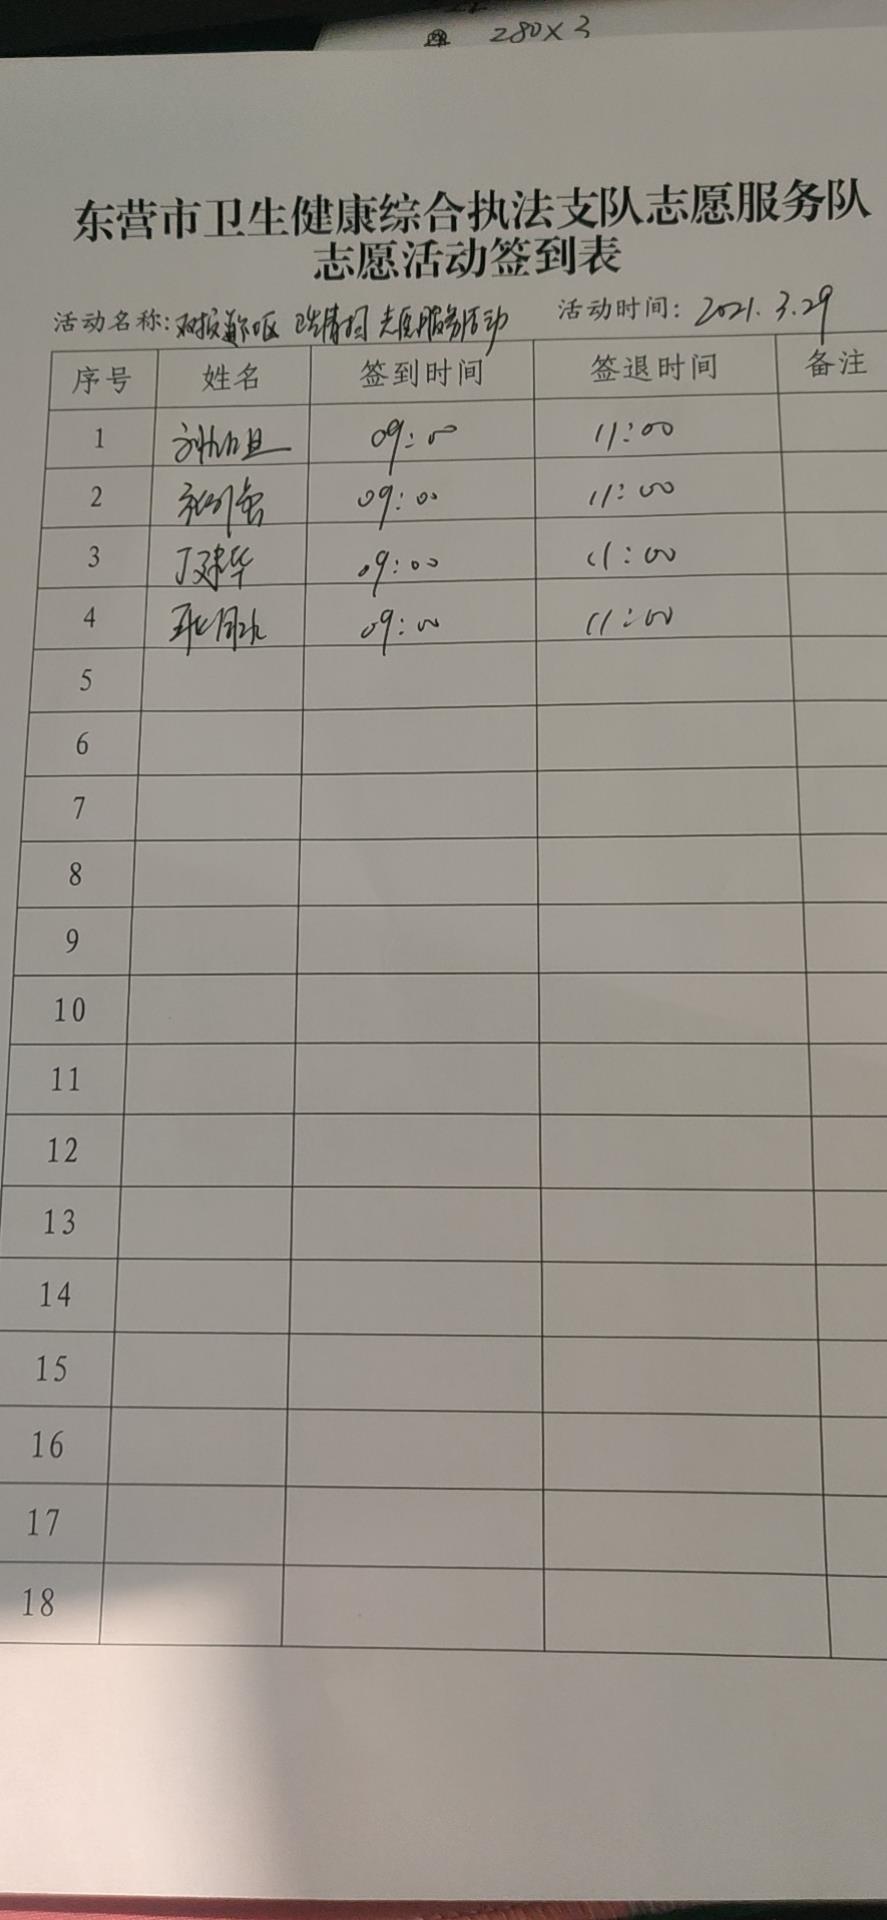 280×3
东营市卫生健康综合执法支队志愿服务队
志愿活动签到表
活动名称: 志愿服务活动 活动时间: 2021.3.29
序号 姓名 签到时间 签退时间 备注
1 09:00 11:00
2 09:00 11:00
3 丁建华 09:00 11:00
4 09:00 11:00
5
6
7
8
9
10
11
12
13
14
15
16
17
18